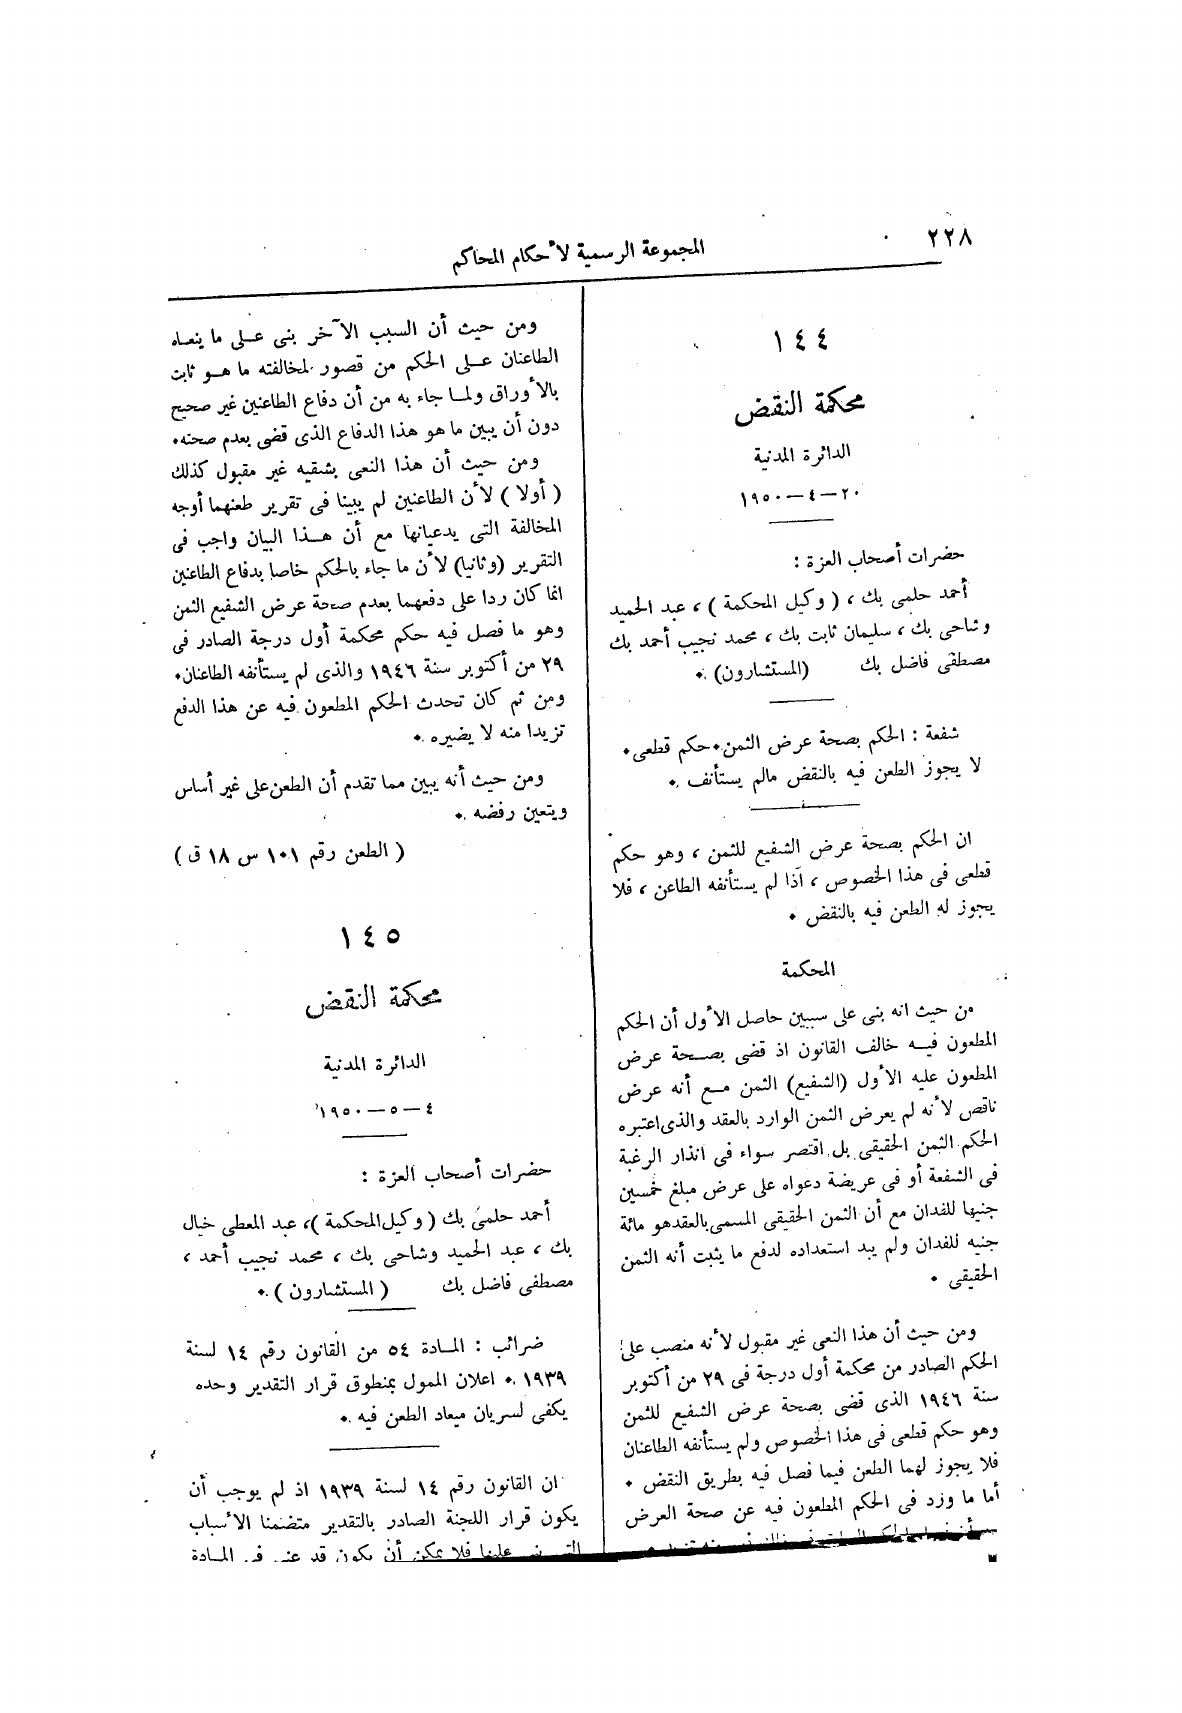 ٢٢٨
المجموعة الرسمية لأحكام المحاكم
١٤٤
محكمة النقض
الدائرة المدنية
٢٠ — ٤ — ١٩٥٠
حضرات أصحاب العزة :
أحمد حلمى بك ، ( وكيل المحكمة ) ، عبد الحميد
وشاحى بك ، سليمان ثابت بك ، محمد نجيب أحمد بك
مصطفى فاضل بك (المستشارون) .
شفعة : الحكم بصحة عرض الثمن . حكم قطعى .
لا يجوز الطعن فيه بالنقض مالم يستأنف .
ان الحكم بصحة عرض الشفيع للثمن ، وهو حكم
قطعى فى هذا الخصوص ، اذا لم يستأنفه الطاعن ، فلا
يجوز له الطعن فيه بالنقض .
المحكمة
من حيث انه بنى على سببين حاصل الأول أن الحكم
المطعون فيه خالف القانون اذ قضى بصحة عرض
المطعون عليه الأول (الشفيع) الثمن مع أنه عرض
ناقص لأنه لم يعرض الثمن الوارد بالعقد والذى اعتبره
الحكم الثمن الحقيقى بل اقتصر سواء فى انذار الرغبة
فى الشفعة أو فى عريضة دعواه على عرض مبلغ خمسين
جنيها للفدان مع أن الثمن الحقيقى المسمى بالعقد هو مائة
جنيه للفدان ولم يبد استعداده لدفع ما يثبت أنه الثمن
الحقيقى .
ومن حيث أن هذا النعى غير مقبول لأنه منصب على
الحكم الصادر من محكمة أول درجة فى ٢٩ من أكتوبر
سنة ١٩٤٦ الذى قضى بصحة عرض الشفيع للثمن
وهو حكم قطعى فى هذا الخصوص ولم يستأنفه الطاعنان
فلا يجوز لهما الطعن فيما فصل فيه بطريق النقض .
أما ما ورد فى الحكم المطعون فيه عن صحة العرض
ومن حيث أن السبب الآخر بنى على ما ينعاه
الطاعنان على الحكم من قصور لمخالفته ما هو ثابت
بالأوراق ولما جاء به من أن دفاع الطاعنين غير صحيح
دون أن يبين ما هو هذا الدفاع الذى قضى بعدم صحته .
ومن حيث أن هذا النعى بشقيه غير مقبول كذلك
( أولا ) لأن الطاعنين لم يبينا فى تقرير طعنهما أوجه
المخالفة التى يدعيانها مع أن هذا البيان واجب فى
التقرير (وثانيا) لأن ما جاء بالحكم خاصا بدفاع الطاعنين
انما كان ردا على دفعهما بعدم صحة عرض الشفيع الثمن
وهو ما فصل فيه حكم محكمة أول درجة الصادر فى
٢٩ من أكتوبر سنة ١٩٤٦ والذى لم يستأنفه الطاعنان .
ومن ثم كان تحدث الحكم المطعون فيه عن هذا الدفع
تزيدا منه لا يضيره .
ومن حيث أنه يبين مما تقدم أن الطعن على غير أساس
ويتعين رفضه .
( الطعن رقم ١٠١ س ١٨ ق )
١٤٥
محكمة النقض
الدائرة المدنية
٤ — ٥ — ١٩٥٠
حضرات أصحاب العزة :
أحمد حلمى بك ( وكيل المحكمة ) ، عبد المعطى خيال
بك ، عبد الحميد وشاحى بك ، محمد نجيب أحمد ،
مصطفى فاضل بك ( المستشارون ) .
ضرائب : المادة ٥٤ من القانون رقم ١٤ لسنة
١٩٣٩ . اعلان الممول بمنطوق قرار التقدير وحده
يكفى لسريان ميعاد الطعن فيه .
ان القانون رقم ١٤ لسنة ١٩٣٩ اذ لم يوجب أن
يكون قرار اللجنة الصادر بالتقدير متضمنا الأسباب
التى بنى عليها فلا يمكن أن يكون قد عنى فى المادة